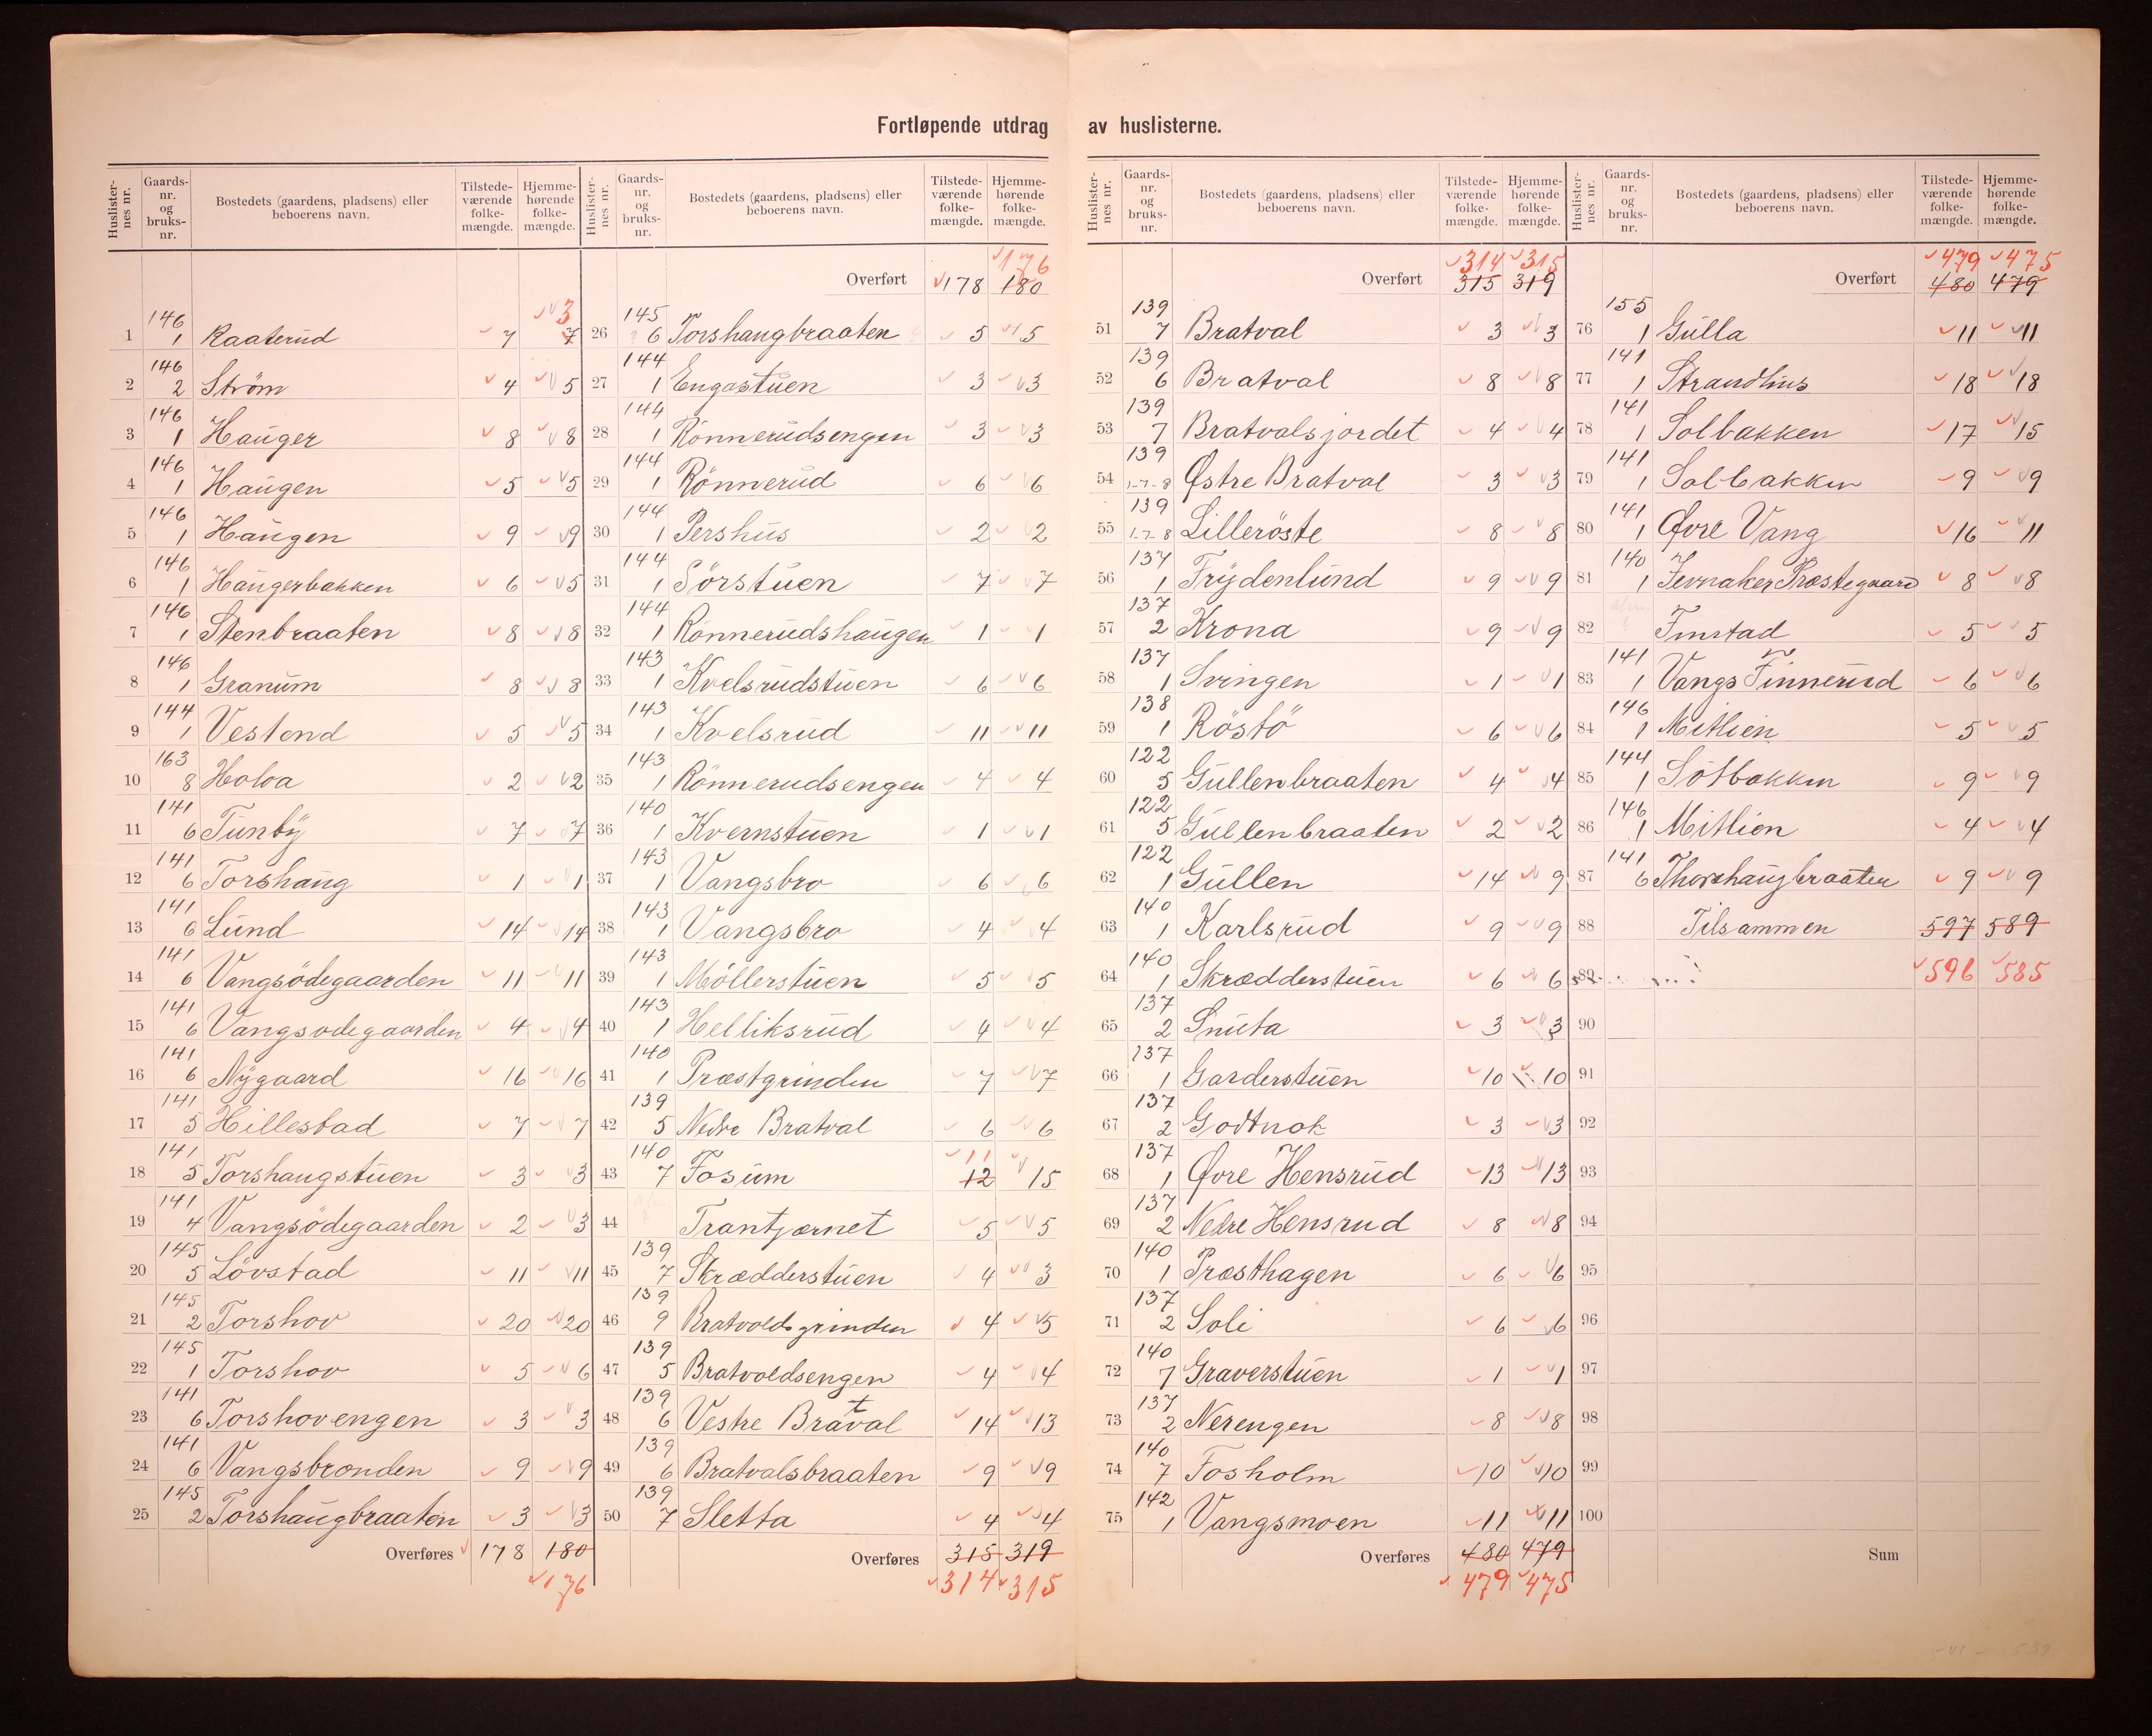 Fortløpende utdrag av huslisterne.
Huslister-nes nr. Gaards-nr. og bruks-nr. Bostedets (gaardens, pladsens) eller beboerens navn. Tilstede-værende folke-mængde. Hjemme-hørende folke-mængde.
1 146 1 Raaterud 7 7 3
2 146 2 Strøm 4 5
3 146 1 Hauger 8 8
4 146 1 Haugen 5 5
5 146 1 Haugen 9 9
6 146 1 Haugerbakken 6 5
7 146 1 Stenbraaten 8 8
8 146 1 Granum 8 8
9 144 1 Vestend 5 5
10 163 8 Holoa 2 2
11 141 6 Tunby 7 7
12 141 6 Torshaug 1 1
13 141 6 Lund 14 14
14 141 6 Vangsödegaarden 11 11
15 141 6 Vangsodegaarden 4 4
16 141 6 Nygaard 16 16
17 141 5 Hillestad 7 7
18 141 5 Torshaugstuen 3 3
19 141 4 Vangsödegaarden 2 3
20 145 5 Lövstad 11 11
21 145 2 Torshov 20 20
22 145 1 Torshov 5 6
23 141 6 Torshovengen 3 3
24 141 6 Vangsbronden 9 9
25 145 2 Torshaugbraaten 3 3
Overføres 178 180
176
Huslister-nes nr. Gaards-nr. og bruks-nr. Bostedets (gaardens, pladsens) eller beboerens navn. Tilstede-værende folke-mængde. Hjemme-hørende folke-mængde.
176
Overført 178 180
26 145 6 Torshaugbraaten 5 5
27 144 1 Engastuen 3 3
28 144 1 Rönnerudsengen 3 3
29 144 1 Rönnerud 6 6
30 144 1 Pershus 2 2
31 144 1 Sörstuen 7 7
32 144 1 Rönnerudshaugen 1 1
33 143 1 Kvelsrudstuen 6 6
34 143 1 Kvelsrud 11 11
35 143 1 Rönnerudsengen 4 4
36 140 1 Kvernstuen 1 1
37 143 1 Vangsbro 6 6
38 143 1 Vangsbro 4 4
39 143 1 Möllerstuen 5 5
40 143 1 Helliksrud 4 4
41 140 1 Præstgrinden 7 7
42 139 5 Nedre Bratval 6 6
43 140 7 Fosum 11 12 15
44 Trantjærnet 5 5
45 139 7 Skrædderstuen 4 3
46 139 9 Bratvoldsgrinden 4 5
47 139 5 Bratvoldsengen 4 4
48 139 6 Vestre Bratval 14 13
49 139 6 Bratvalsbraaten 9 9
50 139 7 Sletta 4 4
Overføres 315 319
314 315
Huslister-nes nr. Gaards-nr. og bruks-nr. Bostedets (gaardens, pladsens) eller beboerens navn. Tilstede-værende folke-mængde. Hjemme-hørende folke-mængde.
314 315
Overført 315 319
51 139 7 Bratval 3 3
52 139 6 Bratval 8 8
53 139 7 Bratvalsjordet 4 4
54 139 1-7-8 Østre Bratval 3 3
55 139 1-7-8 Lilleröste 8 8
56 137 1 Frydenlund 9 9
57 137 2 Krona 9 9
58 137 1 Svingen 1 1
59 138 1 Röstö 6 6
60 122 5 Gullenbraaten 4 4
61 122 5 Gullenbraaten 2 2
62 122 1 Gullen 14 9
63 140 1 Karlsrud 9 9
64 140 1 Skrædderstuen 6 6
65 137 2 Snuta 3 3
66 137 1 Garderstuen 10 10
67 137 2 Godtnok 3 3
68 137 1 Øvre Hensrud 13 13
69 137 2 Nedre Hensrud 8 8
70 140 1 Præsthagen 6 6
71 137 2 Soli 6 6
72 140 7 Graverstuen 1 1
73 137 2 Nerengen 8 8
74 140 7 Fosholm 10 10
75 142 1 Vangsmoen 11 11
Overføres 480 479
479 475
Huslister-nes nr. Gaards-nr. og bruks-nr. Bostedets (gaardens, pladsens) eller beboerens navn. Tilstede-værende folke-mængde. Hjemme-hørende folke-mængde.
479 475
Overført 480 479
76 155 1 Gulla 11 11
77 141 1 Strandhus 18 18
78 141 1 Solbakken 17 15
79 141 1 Solbakken 9 9
80 141 1 Øvre Vang 16 11
81 140 1 Jevnaker Præstegaard 8 8
82 Finstad 5 5
83 141 1 Vangs Finnerud 6 6
84 146 1 Mitlien 5 5
85 144 1 Solbakken 9 9
86 146 1 Mitlien 4 4
87 141 6 Thorshaugbraaten 9 9
88 Tilsammen 597 589
89 596 585
90
91
92
93
94
95
96
97
98
99
100
Sum